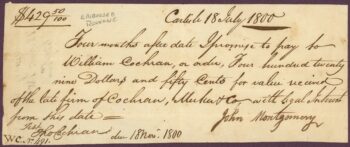 $429 50/100 EMBOSSED REVENUE Carlisle 18 July 1800
Four months after date I promise to pay to
William Cochran, or order, Four hundred twenty
nine Dollars and fifty Cents for value received
of the late firm of Cochran, & Co, with Legal Interest
from this date
Test John Montgomery
Cochran due 18 Nov. 1800
WC. No 491.